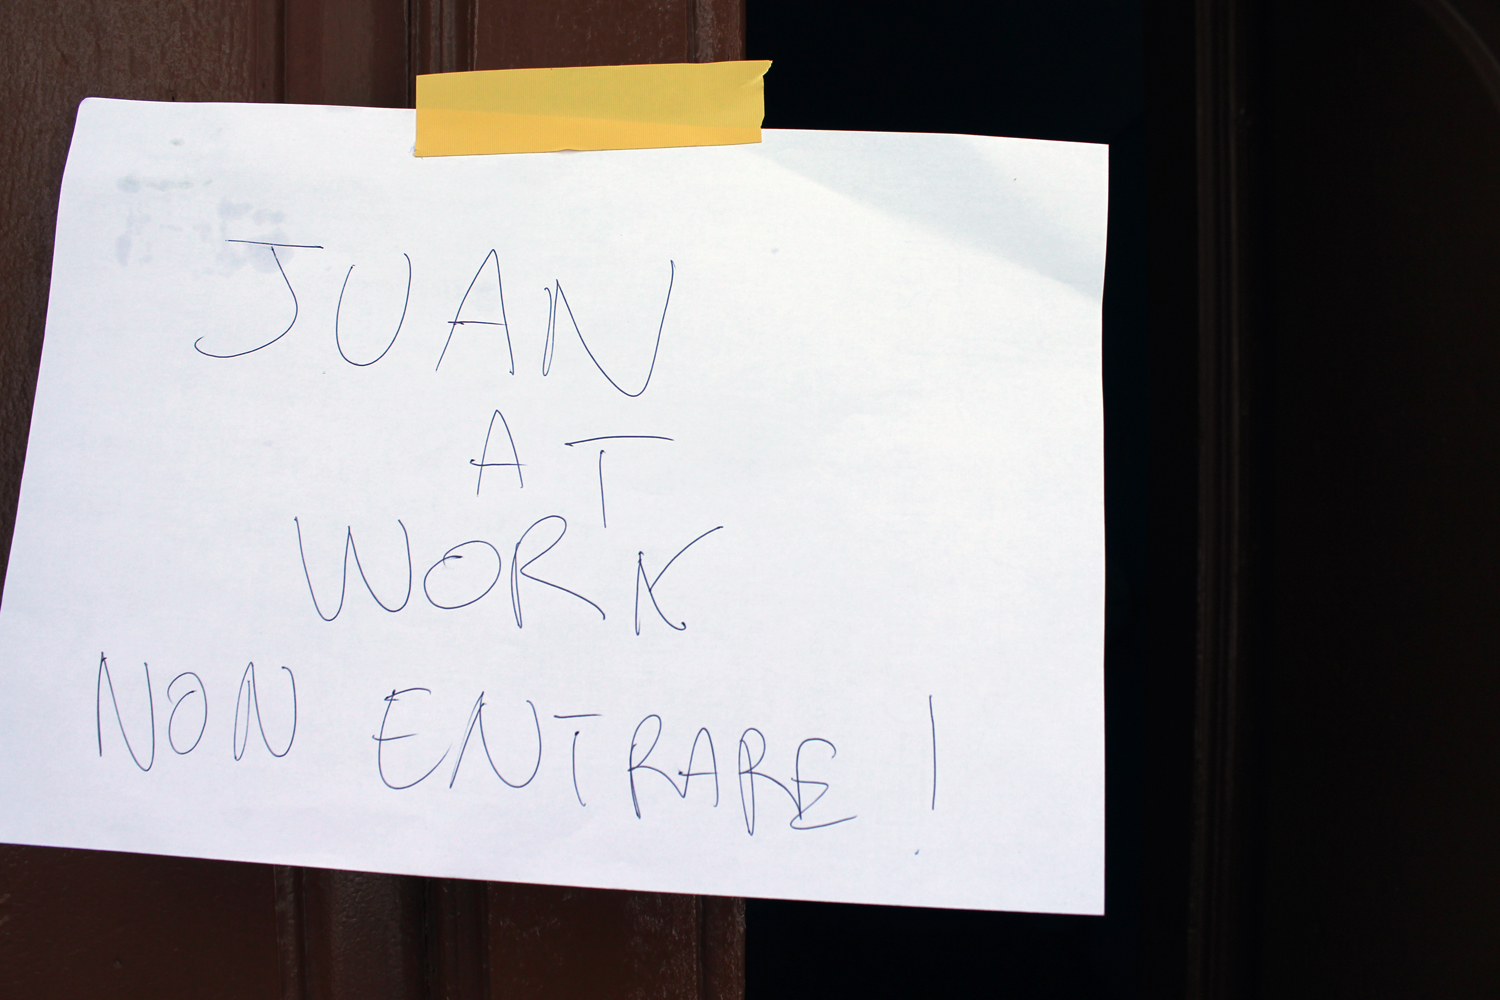 JUAN
AT
WORK
NON ENTRARE!